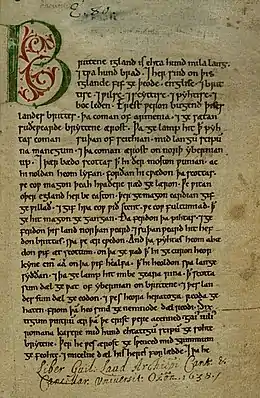 Brittene igland is ehta hund mila lang.
⁊ twa hund brad. ⁊ her sind on þis
iglande fif geþeode. englisc. ⁊ brit
tisc. ⁊ wilsc. ⁊ scyttisc. ⁊ pyhtisc. ⁊
boc leden. Erest weron bugend þises
landes brittes. þa coman of armenia. ⁊ ge sætan
suðewearde bryttene ærost. Þa ge lamp hit þ pyh
tas coman suþan of scithian. mid langū scipū
na manegum. ⁊ þa coman ærost on norþ ybernian
up. ⁊ þær bædo scottas þ hi ðer moston wunian. ac
hi noldan heom lyfan. forðan hi cwædon þa scottas.
we eow magon þeah hwaðere ræd ge læron. We witan
oþer egland her be easton. þer ge magon eardian gif
ge willað. ⁊ gif hwa eow wið stent. we eow fultumiað. þ ge
hit magon ge gangan. Ða ferdon þa pihtas. ⁊ ge
ferdon þis land norþan weard. ⁊ suþan weard hit hef
don brittas. swa we ær cwedon. And þa pyhtas heom abæ
don wif æt scottum. on þa ge rad þ hi ge curon heora
kyne cinn aa on þa wif healfa. þ hi heoldon swa lange
syððan. ⁊ þa ge lamp hit imbe geara rina. þ scotta
sum dæl ge wat of ybernian on brittene. ⁊ þes lan
des sum dæl ge eodon. ⁊ wes heora heratoga. reoda ge
haten. from þā heo sind ge nemnode dæl reodi. Six
tigum wintrū ær þā þe crist were acenned. gaius iulius
romana kasere mid hund ehtatigū scipū ge sohte
brytene. Þer he wes ærost ge swenced mid grimmum
ge feohte. ⁊ micelne dæl his heres for lædde. ⁊ þa he
Liber Guil. Laud Archiepi Cant. &
Cancellar. Universit. Oxon. 1638.